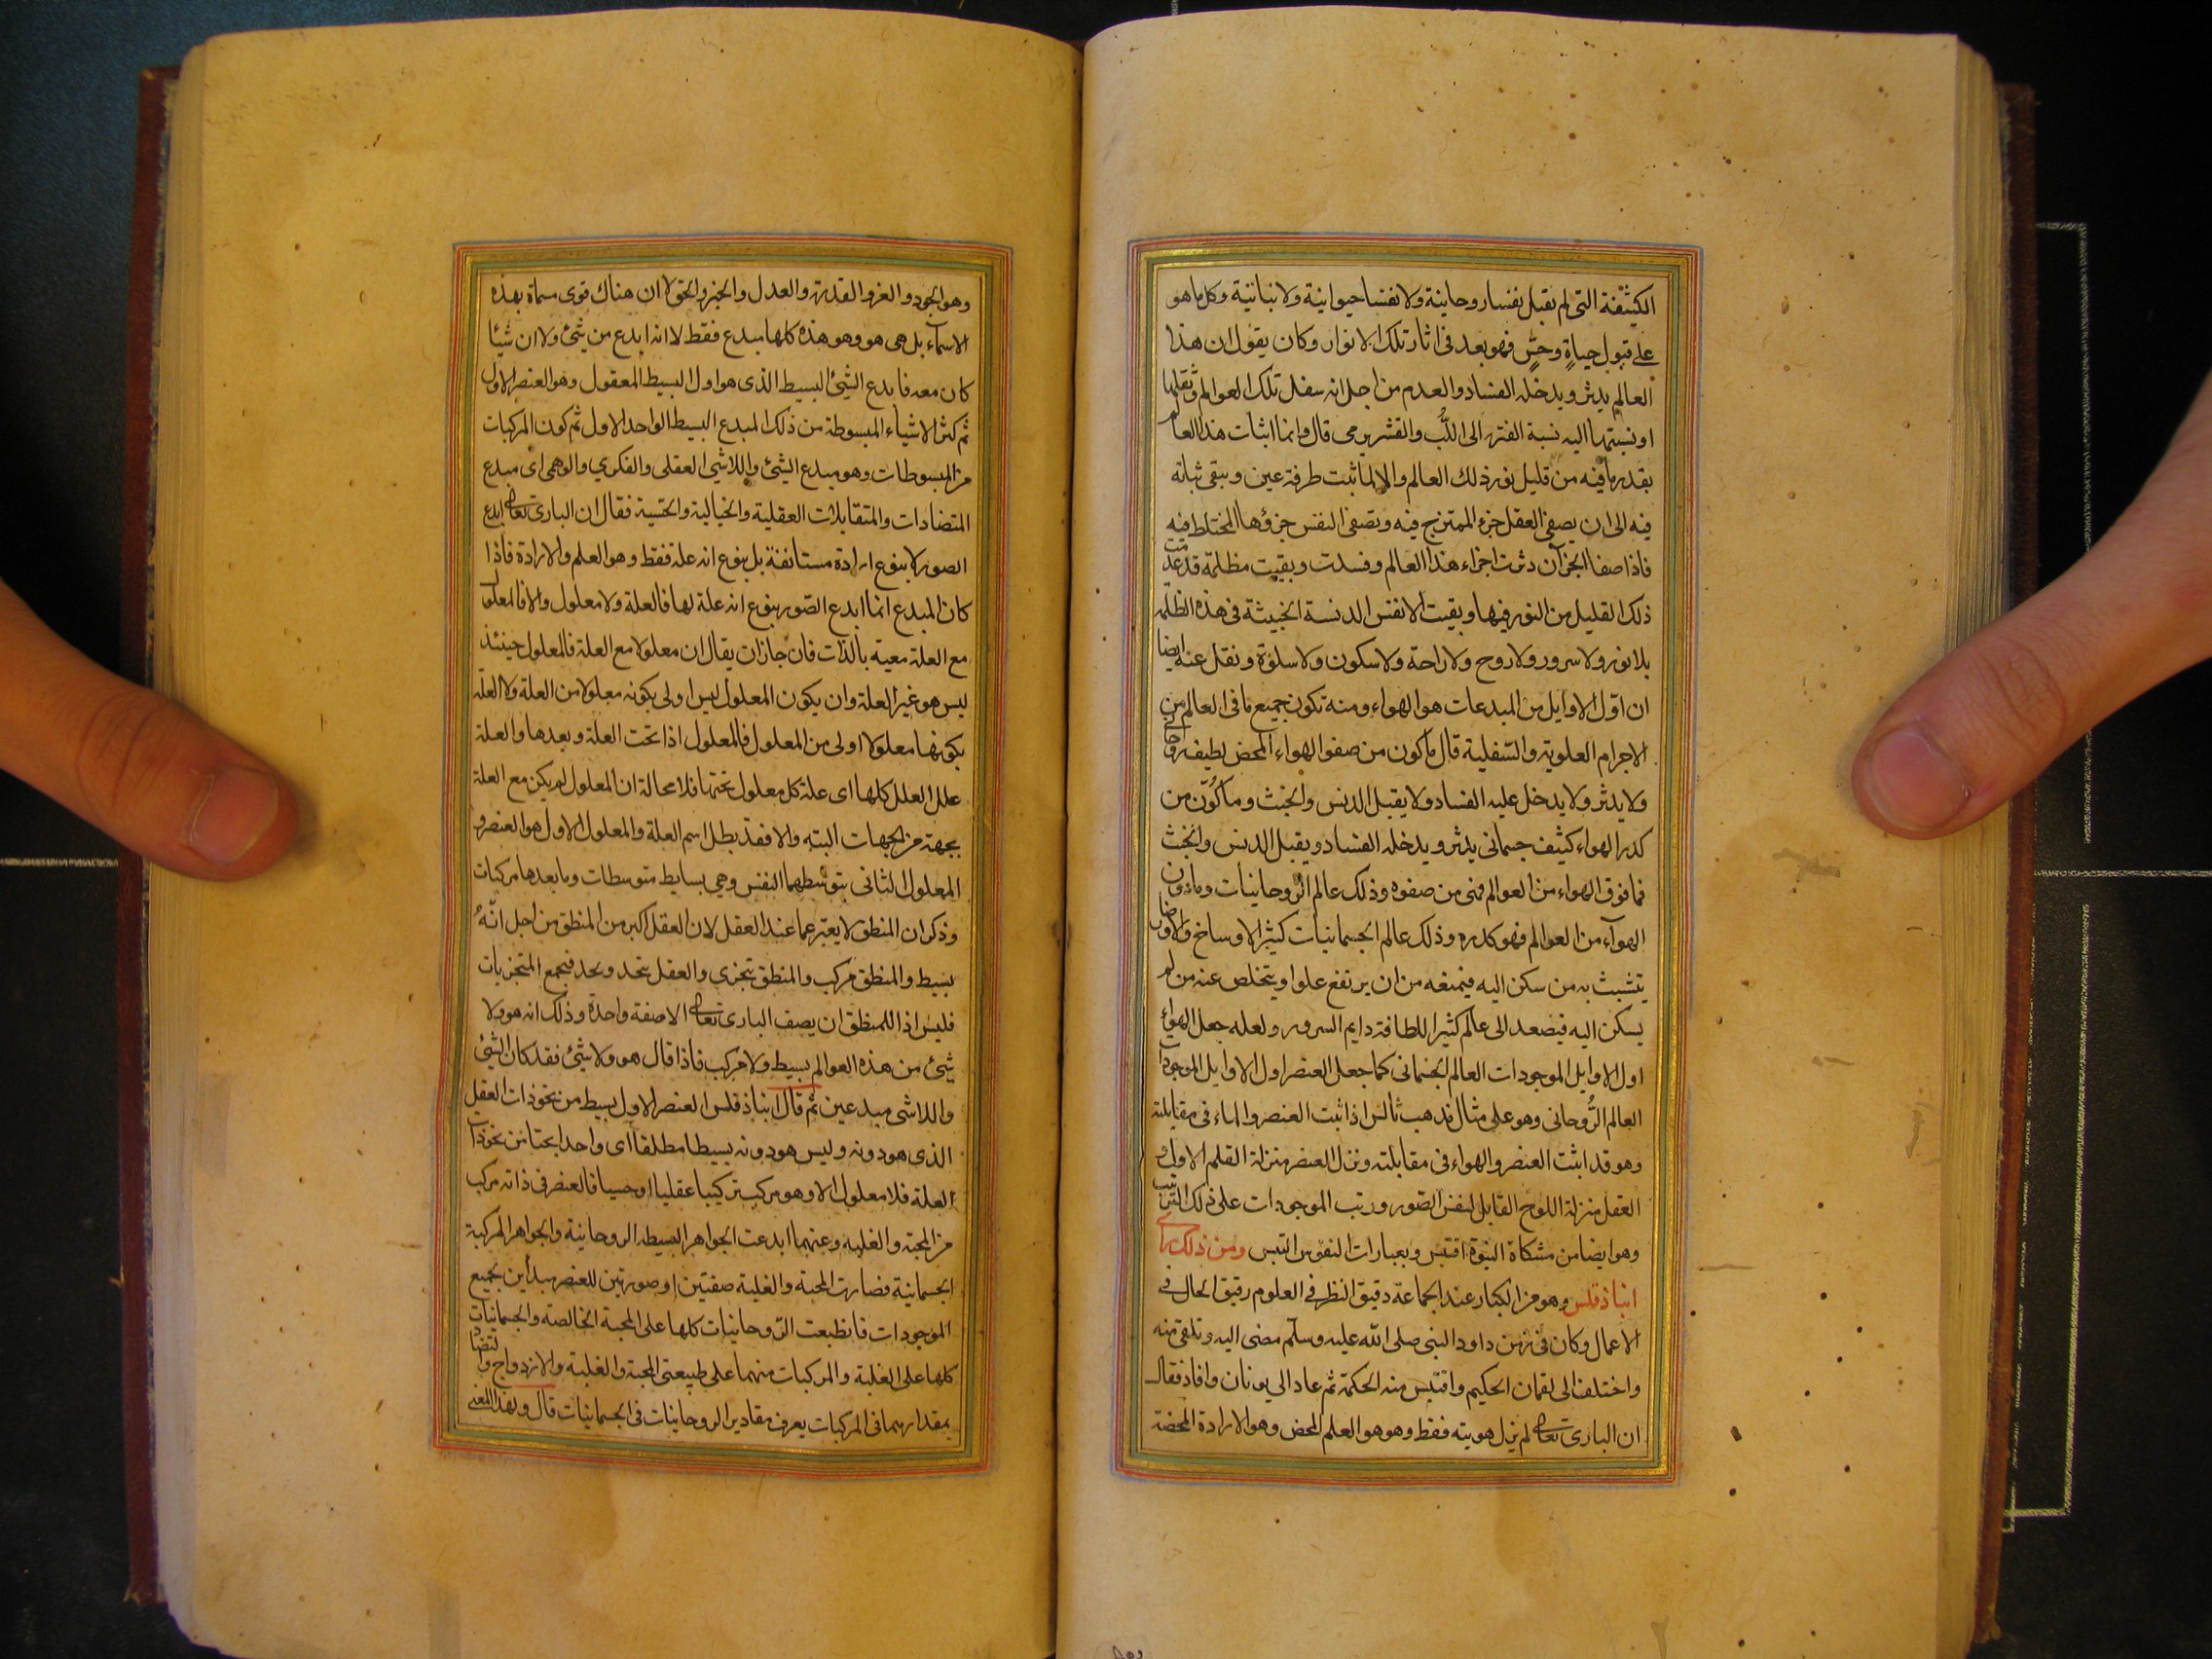 الكثيفة التى لم تقبل نفسا روحانية ولا نفسا حيوانية ولا نباتية وكل ما هو
على قبول حياة وحس فهو بعد فى اثار تلك الانوار وكان يقول ان هذا
العالم يدثر ويدخله الفساد والعدم من اجل انه سفل تلك العوالم وثقلها
او نسبتها اليه نسبة القشر الى اللب والقشر يرمى قال وانما اثبات هذا العالم
بقدر ما فيه من قليل نور ذلك العالم والا لما ثبت طرفة عين ويبقى ثباته
فيه الى ان يصفى العقل جزءه الممتزج فيه وتصفى النفس جزؤها المختلط فيه
فاذا صفا الجزآن دثرت اجزاء هذا العالم وفسدت وبقيت مظلمة قد عدمت
ذلك القليل من النور فيها وبقيت الانفس الدنسة الخبيثة فى هذه الظلمة
بلا نور ولا سرور ولا روح ولا راحة ولا سكون ولا سلوة ونقل عنه ايضا
ان اول الاوايل من المبدعات هو الهواء ومنه تكون جميع ما فى العالم من
الاجرام العلوية والسفلية قال ما كون من صفو الهواء المحض لطيف روحانى
ولا يدثر ولا يدخل عليه الفساد ولا يقبل الدنس والخبث وما كون من
كدر الهواء كثيف جسمانى يدثر ويدخله الفساد ويقبل الدنس والخبث
فما فوق الهواء من العوالم فهى من صفوه وذلك عالم الروحانيات وما دون
الهوآء من العوالم فهو كدره وذلك عالم الجسمانيات كثير الاوساخ والاوضار
يتشبث به من سكن اليه فيمنعه من ان يرتفع علوا ويتخلص عنه من لم
يسكن اليه فيصعد الى عالم كثير اللطافة دايم السرور ولعله جعل الهواء
اول الاوايل الموجودات العالم الجسمانى كما جعل العنصر اول الاوايل الموجودات
العالم الروحانى وهو على مثال مذهب ثالس اذا ثبت العنصر والماء فى مقابلته
وهو قد اثبت العنصر والهواء فى مقابلته ونزل العنصر منزلة القلم الاول و
العقل منزلة اللوح القابل لنفس الصور ورتب الموجودات على ذلك الترتيب
وهو ايضا من مشكاة النبوة اقتبس وبعبارات النفوس التبس ومن ذلك راى
انباذقلس وهو من الكبار عند الجماعة دقيق النظر فى العلوم رقيق الحال فى
الاعمال وكان فى زمن داود النبى صلى الله عليه وسلم مضى اليه وتلقى منه
واختلف الى لقمان الحكيم واقتبس منه الحكمة ثم عاد الى يونان وافاد فقال
ان البارى تعالى لم يزل هويته فقط وهو هو العلم المحض وهو الارادة المحضة
وهو الجود والعز والقدرة والعدل والخير والحق لا ان هناك قوى مسماة بهذه
الاسماء بل هى هو وهو هذه كلها مبدع فقط لا انه ابدع من شئ ولا ان شيئا
كان معه فابدع الشئ البسيط الذى هو اول البسيط المعقول وهو العنصر الاول
ثم كثر الاشياء المبسوطة من ذلك المبدع البسيط الواحد الاول ثم كون المركبات
من المبسوطات وهو مبدع الشئ واللاشئ العقلى والفكرى والوهمى اى مبدع
المتضادات والمتقابلات العقلية والخيالية والحسية فقال ان البارى تعالى ابدع
الصور لا بنوع ارادة مستانفة بل بنوع انه علة فقط وهو العلم والارادة فاذا
كان المبدع انما ابدع الصور بنوع انه علة لها فالعلة ولا معلول والا فالمعلول
مع العلة معية بالذات فان جاز ان يقال ان معلولا مع العلة فالمعلول حينئذ
ليس هو غير العلة وان يكون المعلول ليس اولى بكونه معلولا من العلة ولا العلة
بكونها معلولا اولى من المعلول فالمعلول اذا تحت العلة وبعدها والعلة
علل العلل كلها اى علة كل معلول تحتها فلا محالة ان المعلول لم يكن مع العلة
بجهة من الجهات البته والا فقد بطل اسم العلة والمعلول الاول هو العنصر و
المعلول الثانى بتوسطهما النفس وهى بسايط متوسطات وما بعدها مركبات
وذكر ان المنطق لا يعبر عما عند العقل لان العقل اكبر من المنطق من اجل انه
بسيط والمنطق مركب والمنطق يتجزى والعقل يتحد ويحد فيجمع المتجزيات
فليس اذا للمنطق ان يصف البارى تعالى الا صفة واحدة وذلك انه هو ولا
شئ من هذه العوالم بسيط ولا مركب فاذا قال هو ولا شئ فقد كان الشئ
واللاشى مبدعين ثم قال انباذقلس العنصر الاول بسيط من نحو ذات العقل
الذى هو دونه وليس هو دونه بسيطا مطلقا اى واحدا بحتا من نحو ذات
العلة فلا معلول الا وهو مركب تركيبا عقليا او حسيا فالعنصر فى ذاته مركب
من المحبة والغلبة وعنهما ابدعت الجواهر البسيطة الروحانية والجواهر المركبة
الجسمانية فصارت المحبة والغلبة صفتين او صورتين للعنصر مبداين بجميع
الموجودات فانطبعت الروحانيات كلها على المحبة الخالصة والجسمانيات
كلها على الغلبة والمركبات منهما على طبيعتى المحبة والغلبة والازدواج والتضاد
بمقدارهما فى المركبات يعرف مقادير الروحانيات فى الجسمانيات قال ولهذا المعنى